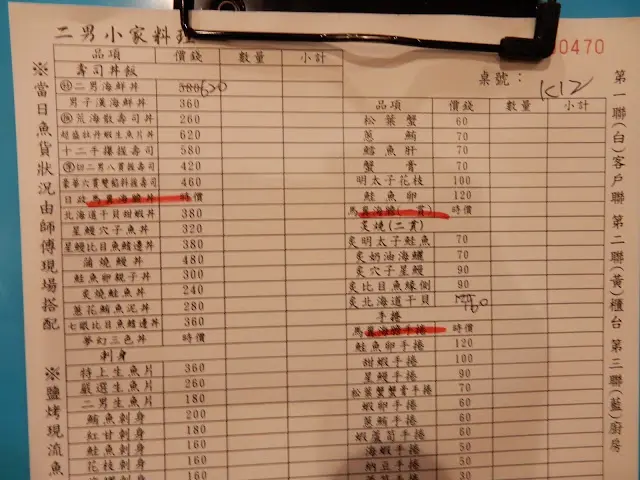 二男小家料理
00470
桌號: K12
品項 價錢 數量 小計
壽司丼飯
二男海鮮丼 580 620
男子漢海鮮丼 360
荒海散壽司丼 260
超盛牡丹蝦生魚片丼 620
十二手握壽司 580
切二男八貫握壽司 420
豪華六貫雙餡料握壽司 460
日政馬糞海膽丼 時價
北海道干貝甜蝦丼 380
星鰻穴子魚丼 320
星鰻比目魚鰭邊丼 380
蒲燒鰻丼 480
鮭魚卵親子丼 300
炙燒鮭魚丼 240
蔥花鮪魚泥丼 280
七眼比目魚鰭邊丼 360
夢幻三色丼 時價
刺身
特上生魚片 360
嚴選生魚片 260
二男生魚片 180
鮪魚刺身 200
紅甘刺身 180
鮭魚刺身 160
花枝刺身 160
品項 價錢 數量 小計
松葉蟹 60
蔥鮪 70
鱈魚肝 70
蟹膏 70
明太子花枝 100
鮭魚卵 120
馬糞海膽(一貫) 時價
炙燒(二貫)
炙明太子鮭魚 70
炙奶油海鱺 70
炙穴子星鰻 90
炙比目魚緣側 90
炙北海道干貝
手捲
馬糞海膽手捲 時價
鮭魚卵手捲 120
甜蝦手捲 100
星鰻手捲 90
松葉蟹蟹膏手捲 70
蝦卵手捲 60
蔥鮪手捲 60
蝦蘆筍手捲 60
海蝦手捲 50
納豆手捲 50
30
※當日魚貨狀況由師傅現場搭配
※鹽烤現流魚
第一聯(白)客戶聯 第二聯(黃)櫃台 第三聯(藍)廚房